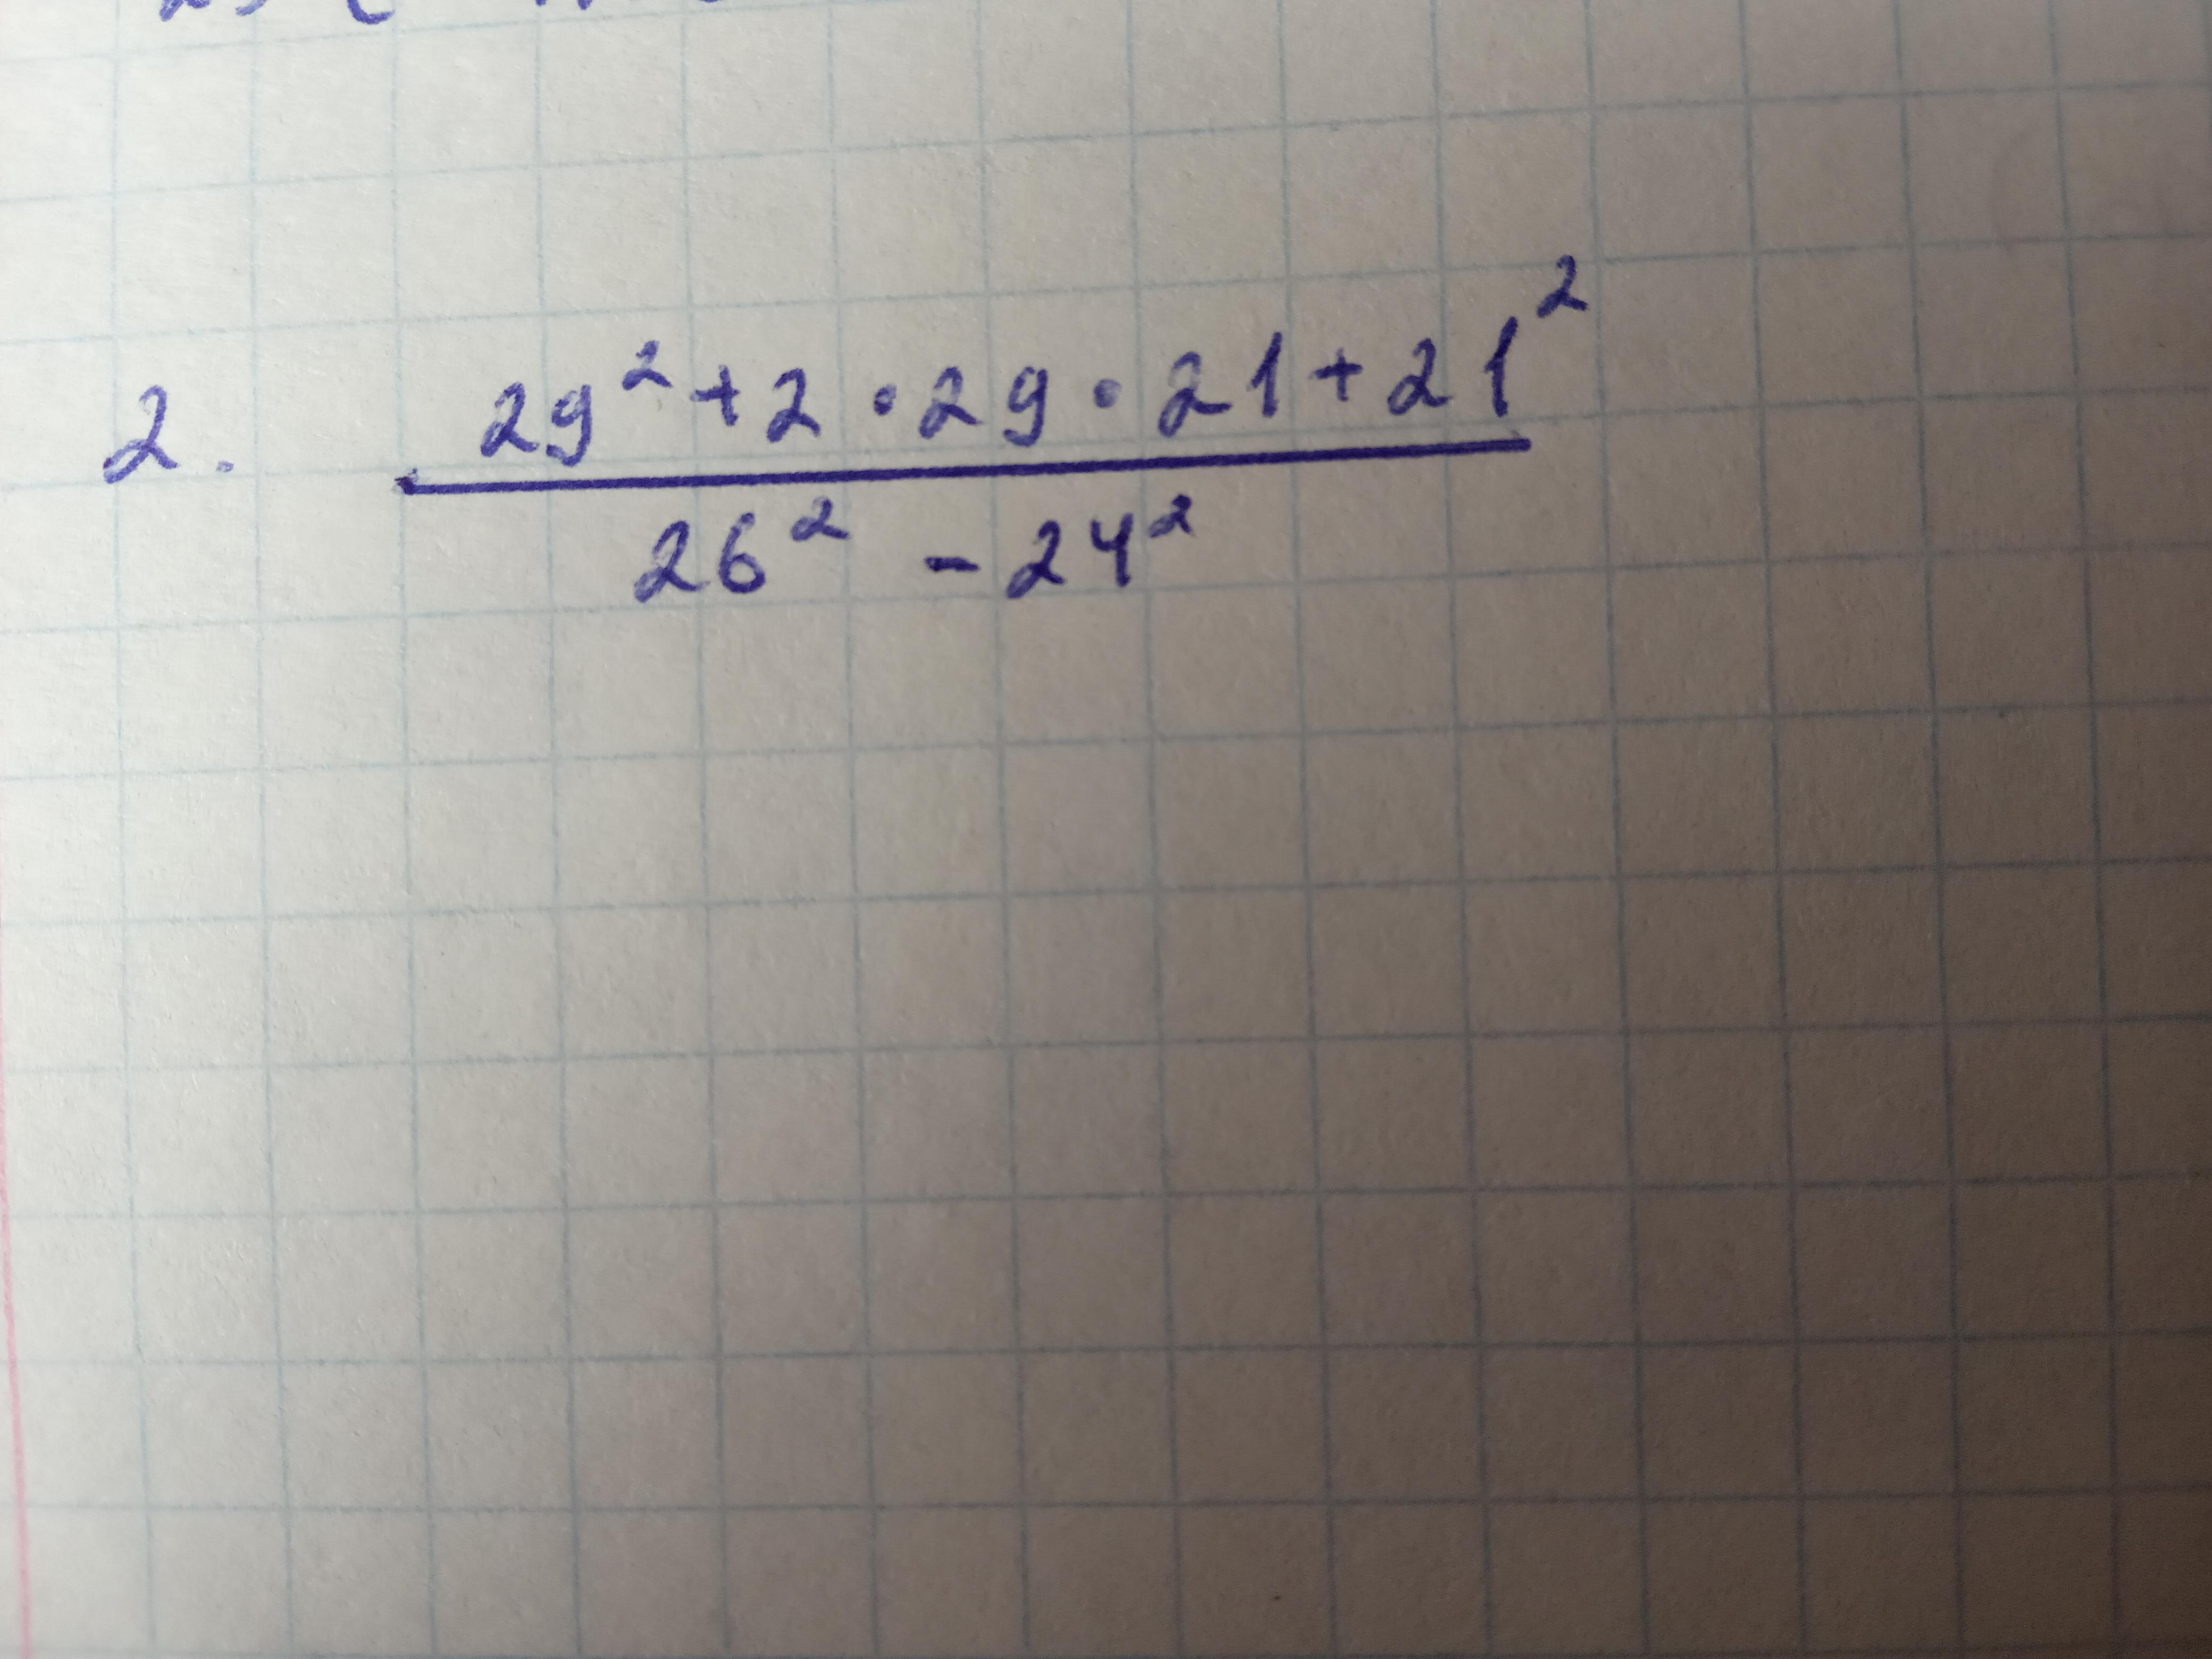 2. 29² + 2 · 29 · 21 + 21²
26² - 24²